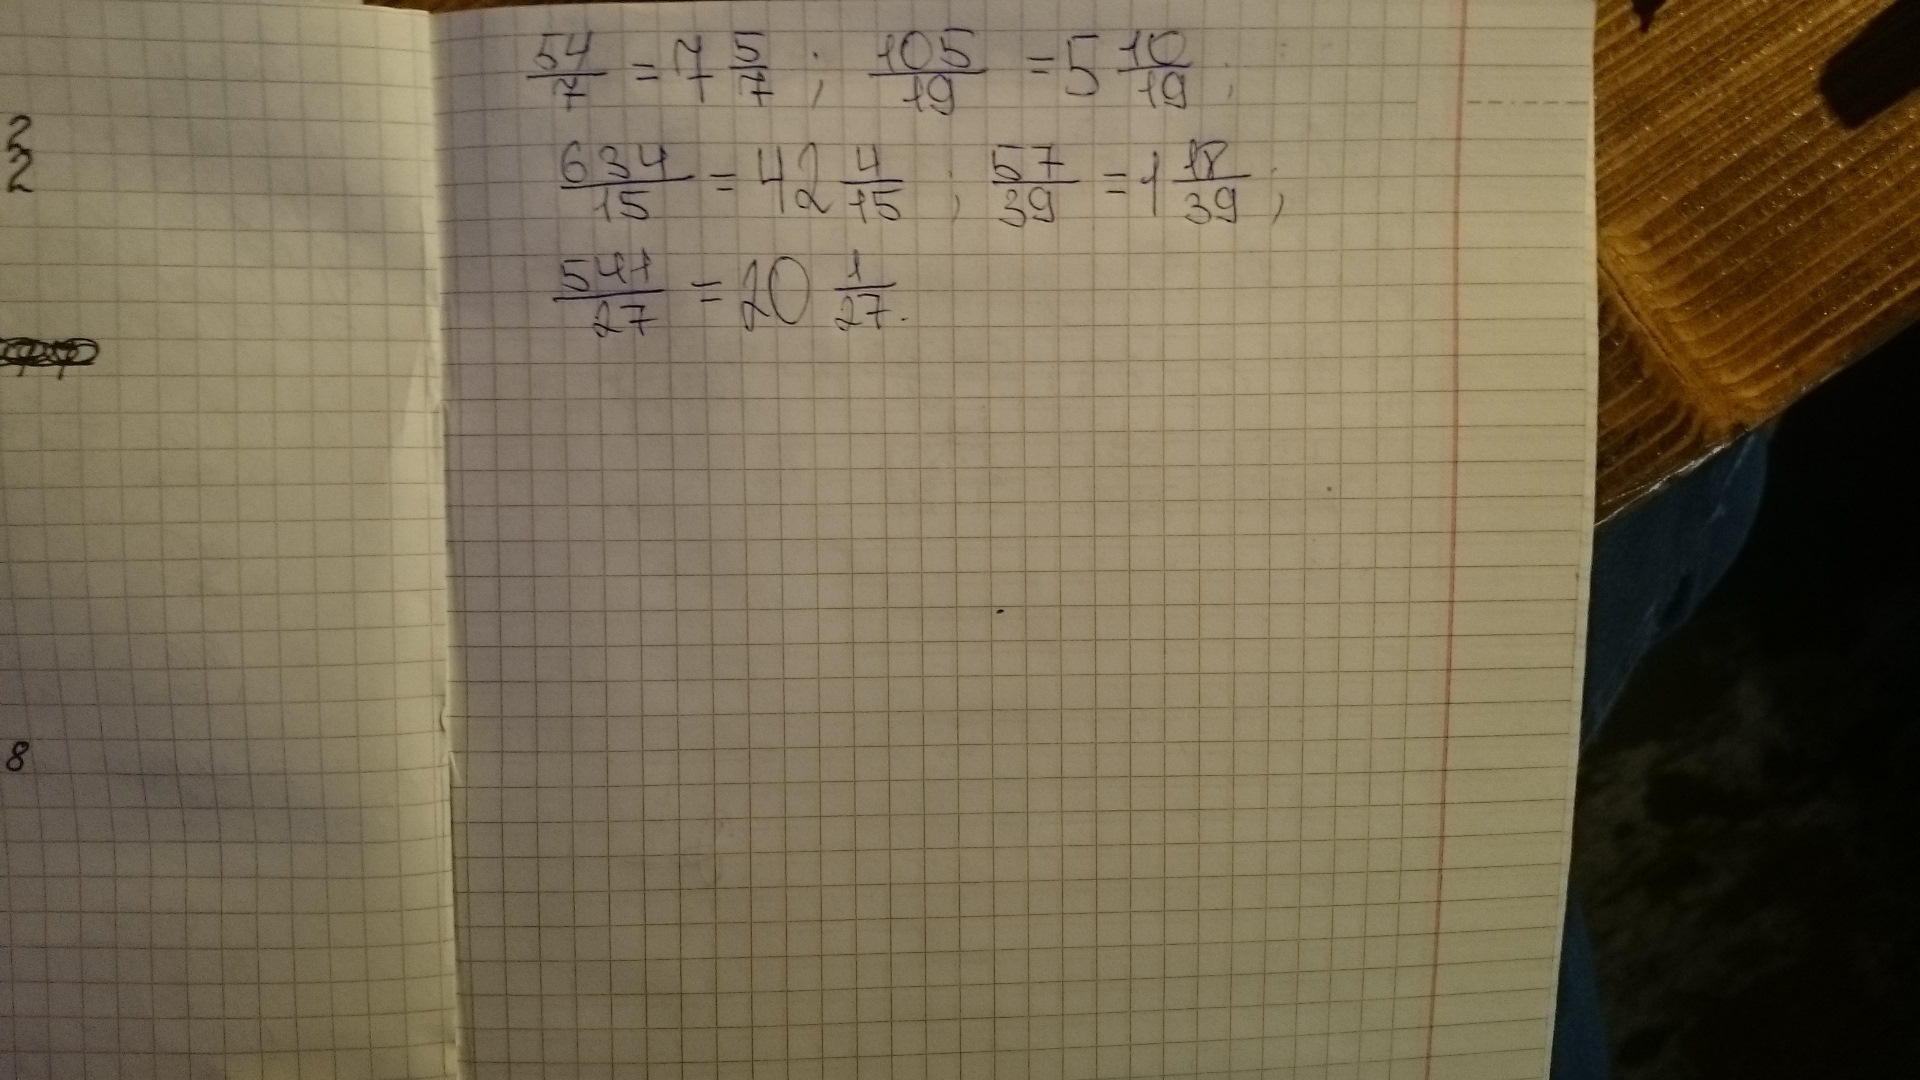 2
2
8
54/7 = 7 5/7 ; 105/19 = 5 10/19 ;
634/15 = 42 4/15 ; 57/39 = 1 18/39 ;
541/27 = 20 1/27.